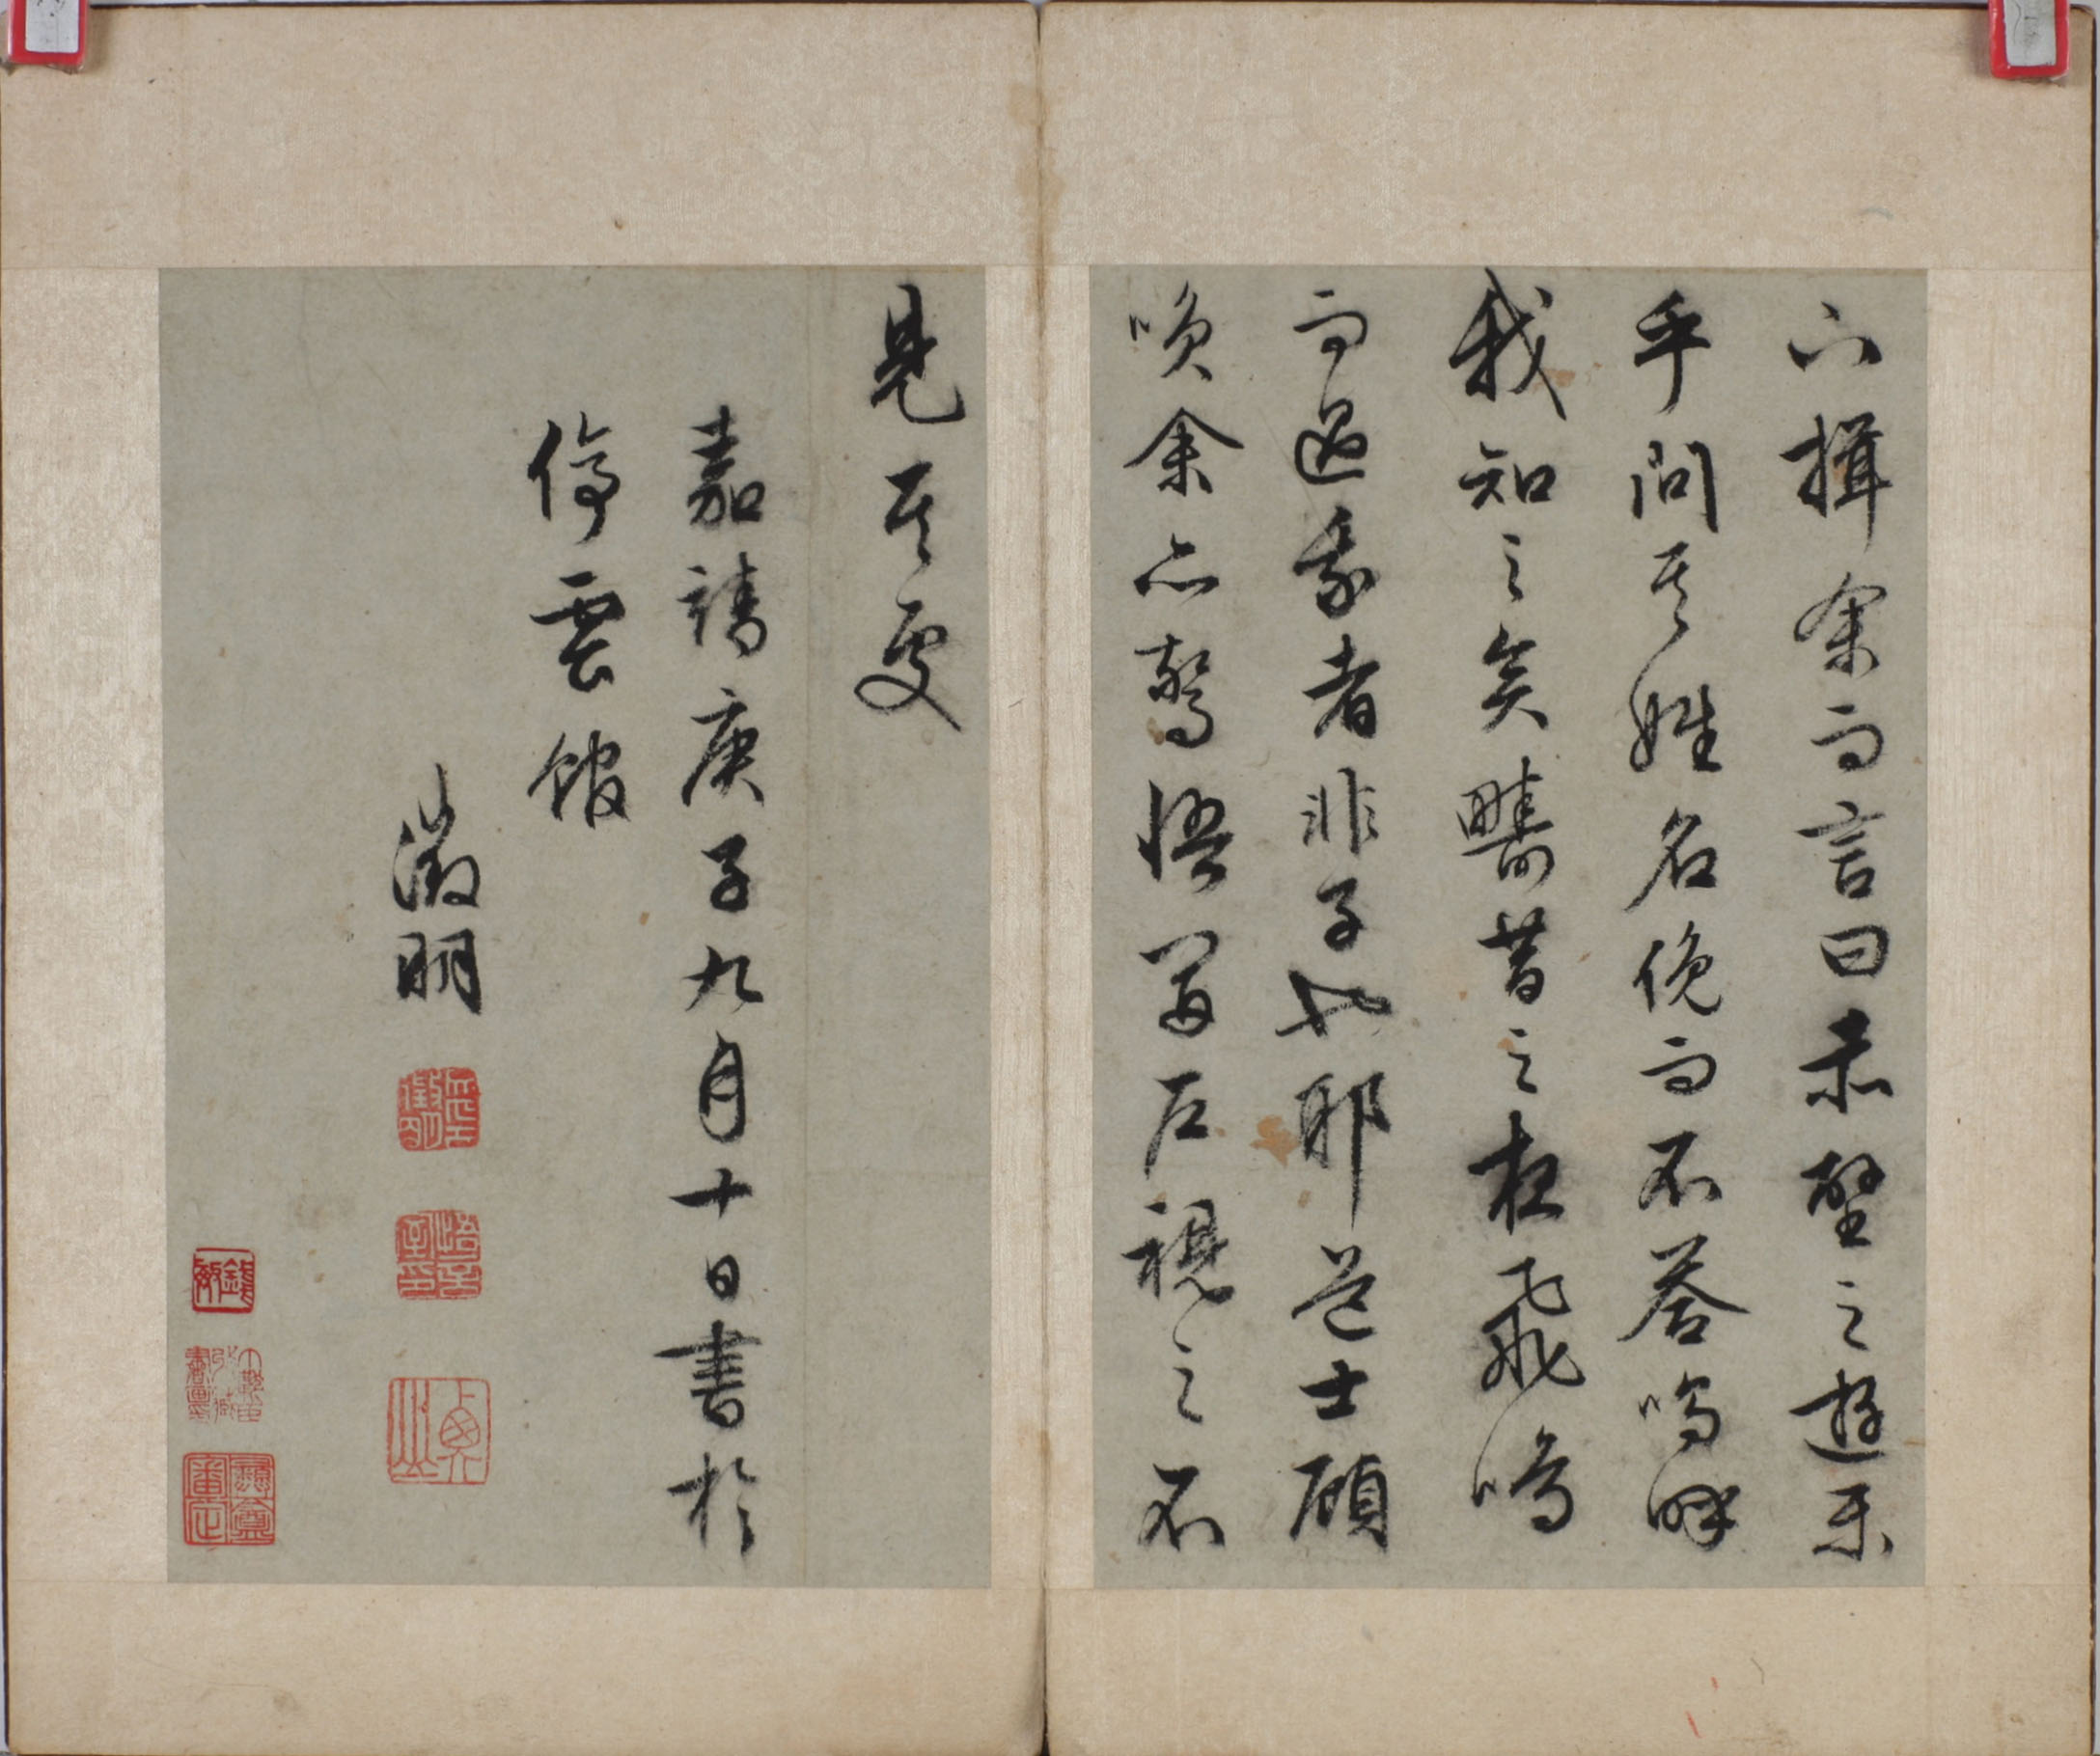 下揖余而言曰赤壁之遊樂
乎問其姓名俛而不荅嗚呼
我知之矣疇昔之夜飛鳴
而過我者非子也耶道士顧
笑余亦驚悟開戶視之不
見其處
嘉靖庚子九月十日書於
停雲館
徵明